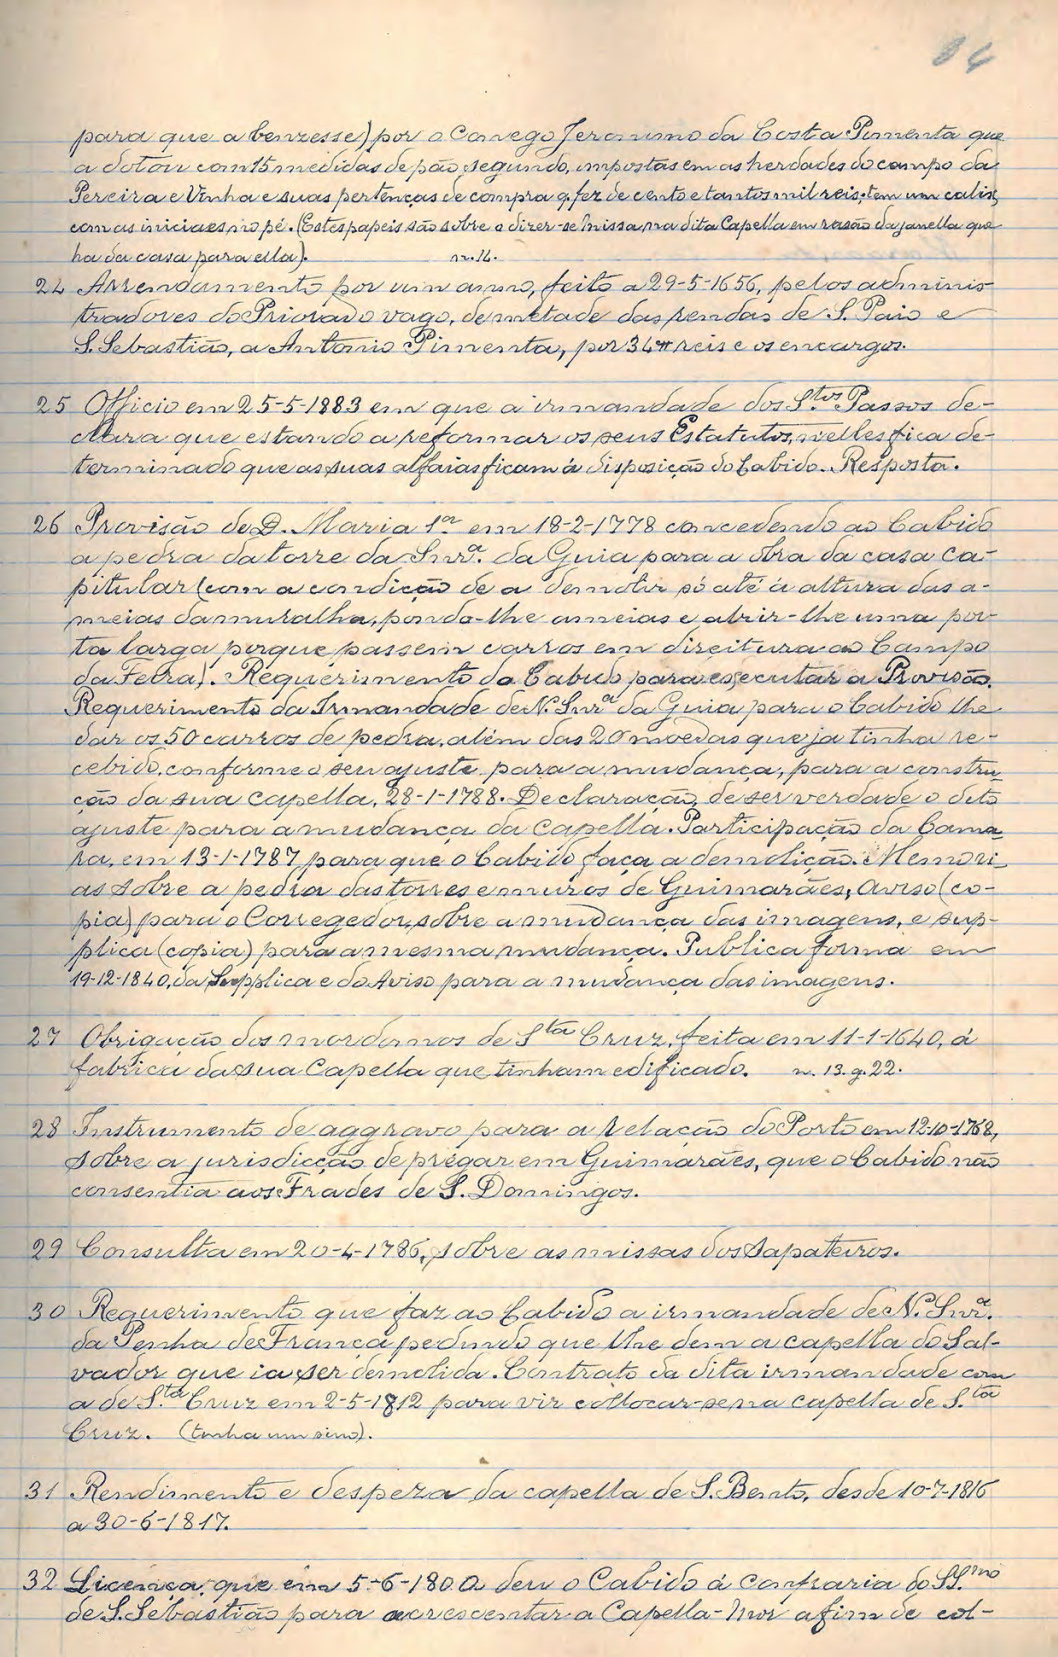 84
para que a benzesse) por o Conego Jeronimo da Costa Pimenta que
a dotou com 15 medidas de pão, segundo, impostas em as herdades do campo da
Pereira e Vinha e suas pertenças de compra q. fez de cento e tantos mil reis; tem um calix,
com as iniciaes, no pé. (Estes papeis são sobre o dizer-se missa na dita Capella em rasão da janella que
ha da casa para ella). n.º 12.
24 Arrendamento por um anno, feito a 29-5-1656, pelos adminis-
tradores do Priorado vago, de metade das rendas de S. Paio e
S. Sebastião, a Antonio Pimenta, por 34$ reis e os encargos.
25 Officio em 25-5-1883 em que a irmandade dos S.tos Passos de-
clara que estando a reformar os seus Estatutos, nelles fica de-
terminado que as suas alfaias ficam á disposição do Cabido. Resposta.
26 Provisão de D. Maria 1ª em 18-2-1778 concedendo ao Cabido
a pedra da torre da Snrª. da Guia para a obra da casa ca-
pitular (com a condição de a demolir só até á altura das a-
meias da muralha, pondo-lhe ameias e abrir-lhe uma por-
ta larga porque passem carros em direitura ao Campo
da Feira). Requerimento do Cabido para executar a Provisão.
Requerimento da Irmandade de N. Snrª da Guia para o Cabido lhe
dar os 50 carros de pedra, além das 20 moedas que ja tinha re-
cebido, conforme o seu ajuste para a mudança, para a constru-
ção da sua capella, 28-1-1788. Declaração de ser verdade o dito
ajuste para a mudança da capella. Participação da Cama-
ra, em 13-1-1787, para que o Cabido faça a demolição. Memori-
as sobre a pedra das torres e muros de Guimarães; Aviso (co-
pia) para o Corregedor, sobre a mudança das imagens, e sup-
plica (copia) para a mesma mudança. Publica forma em
19-12-1840, da Supplica e do Aviso para a mudança das imagens.
27 Obrigação dos mordomos de S.ta Cruz, feita em 11-1-1640, á
fabrica da sua Capella que tinham edificado. n. 13. g. 22.
28 Instrumento de aggravo para a relação do Porto em 12-10-1768,
sobre a jurisdicção de prégar em Guimarães, que o Cabido não
consentia aos Frades de S. Domingos.
29 Consulta em 20-4-1786, sobre as missas dos sapateiros.
30 Requerimento que faz ao Cabido a irmandade de N. Snrª.
da Penha de França pedindo que lhe dem a capella do Sal-
vador que ia ser demolida. Contrato da dita irmandade com
a de S.ta Cruz em 2-5-1812 para vir collocar-se na capella de S.ta
Cruz. (tinha um sino).
31 Rendimento e despeza da capella de S. Bento, desde 10-7-1816
a 30-6-1817.
32 Licença, que em 5-6-1800 deu o Cabido á confraria do SS.mo
de S. Sebastião para accrescentar a Capella-Mor afim de col-